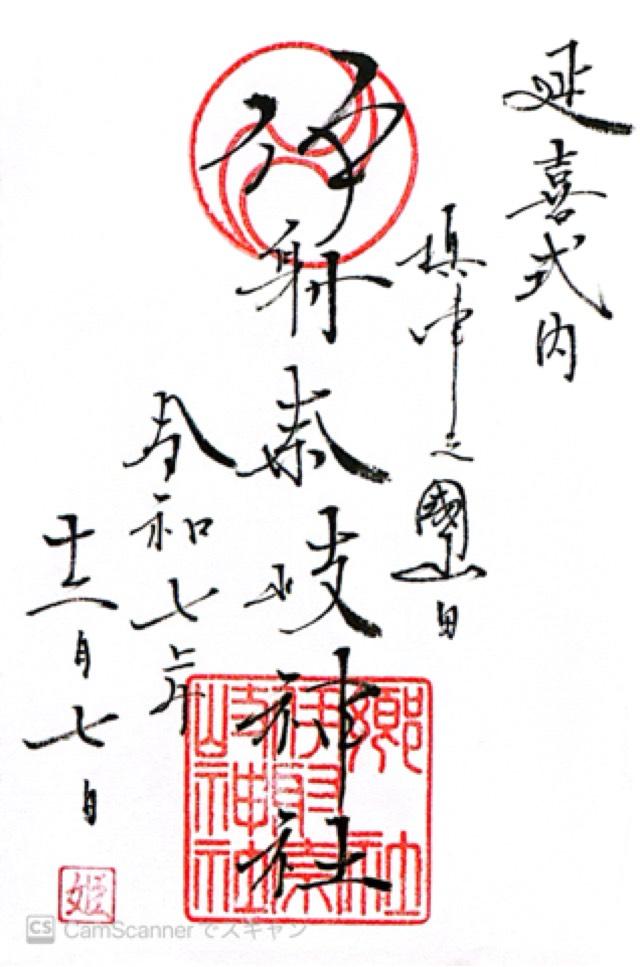 延喜式内
摂津之國山田
伊射奈岐神社
令和七年
十二月七日
鄕社
伊射奈
岐神社
姫
CS CamScanner でスキャン